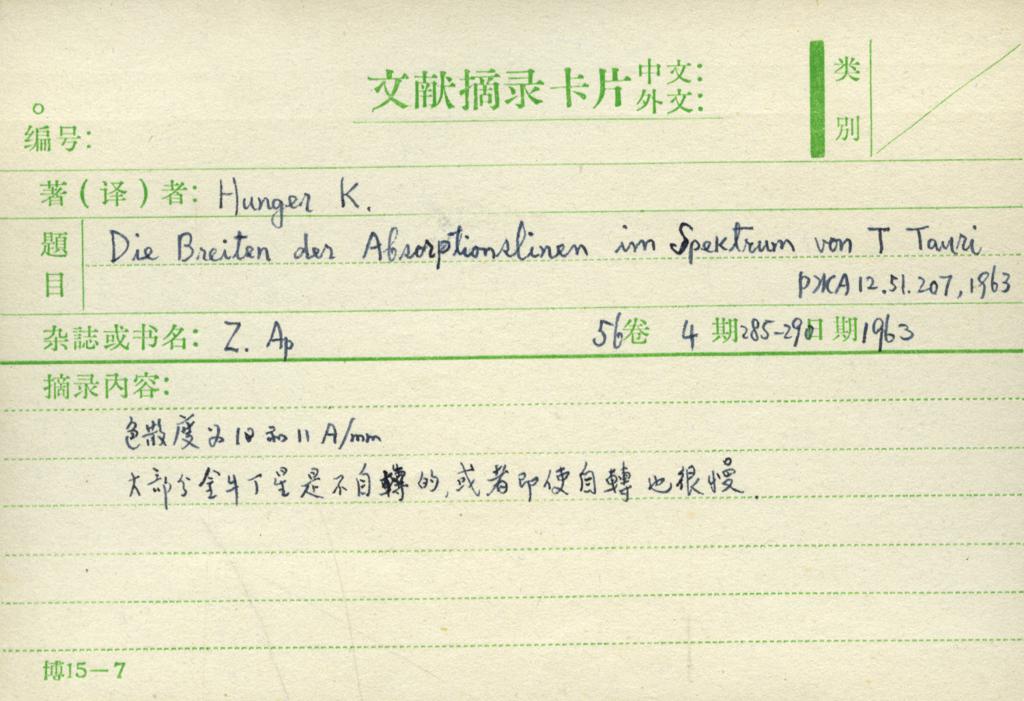 文献摘录卡片 中文:
外文:
类别
编号:
著(译)者: Hunger K.
题目 Die Breiten der Absorptionslinen im Spektrum von T Tauri
РЖА 12.51.207, 1963
杂誌或书名: Z. Ap 56卷 4 期 285-290 日期 1963
摘录内容:
色散度为 10 和 11 A/mm
大部分金牛T星是不自轉的, 或者即使自轉也很慢.
博15—7